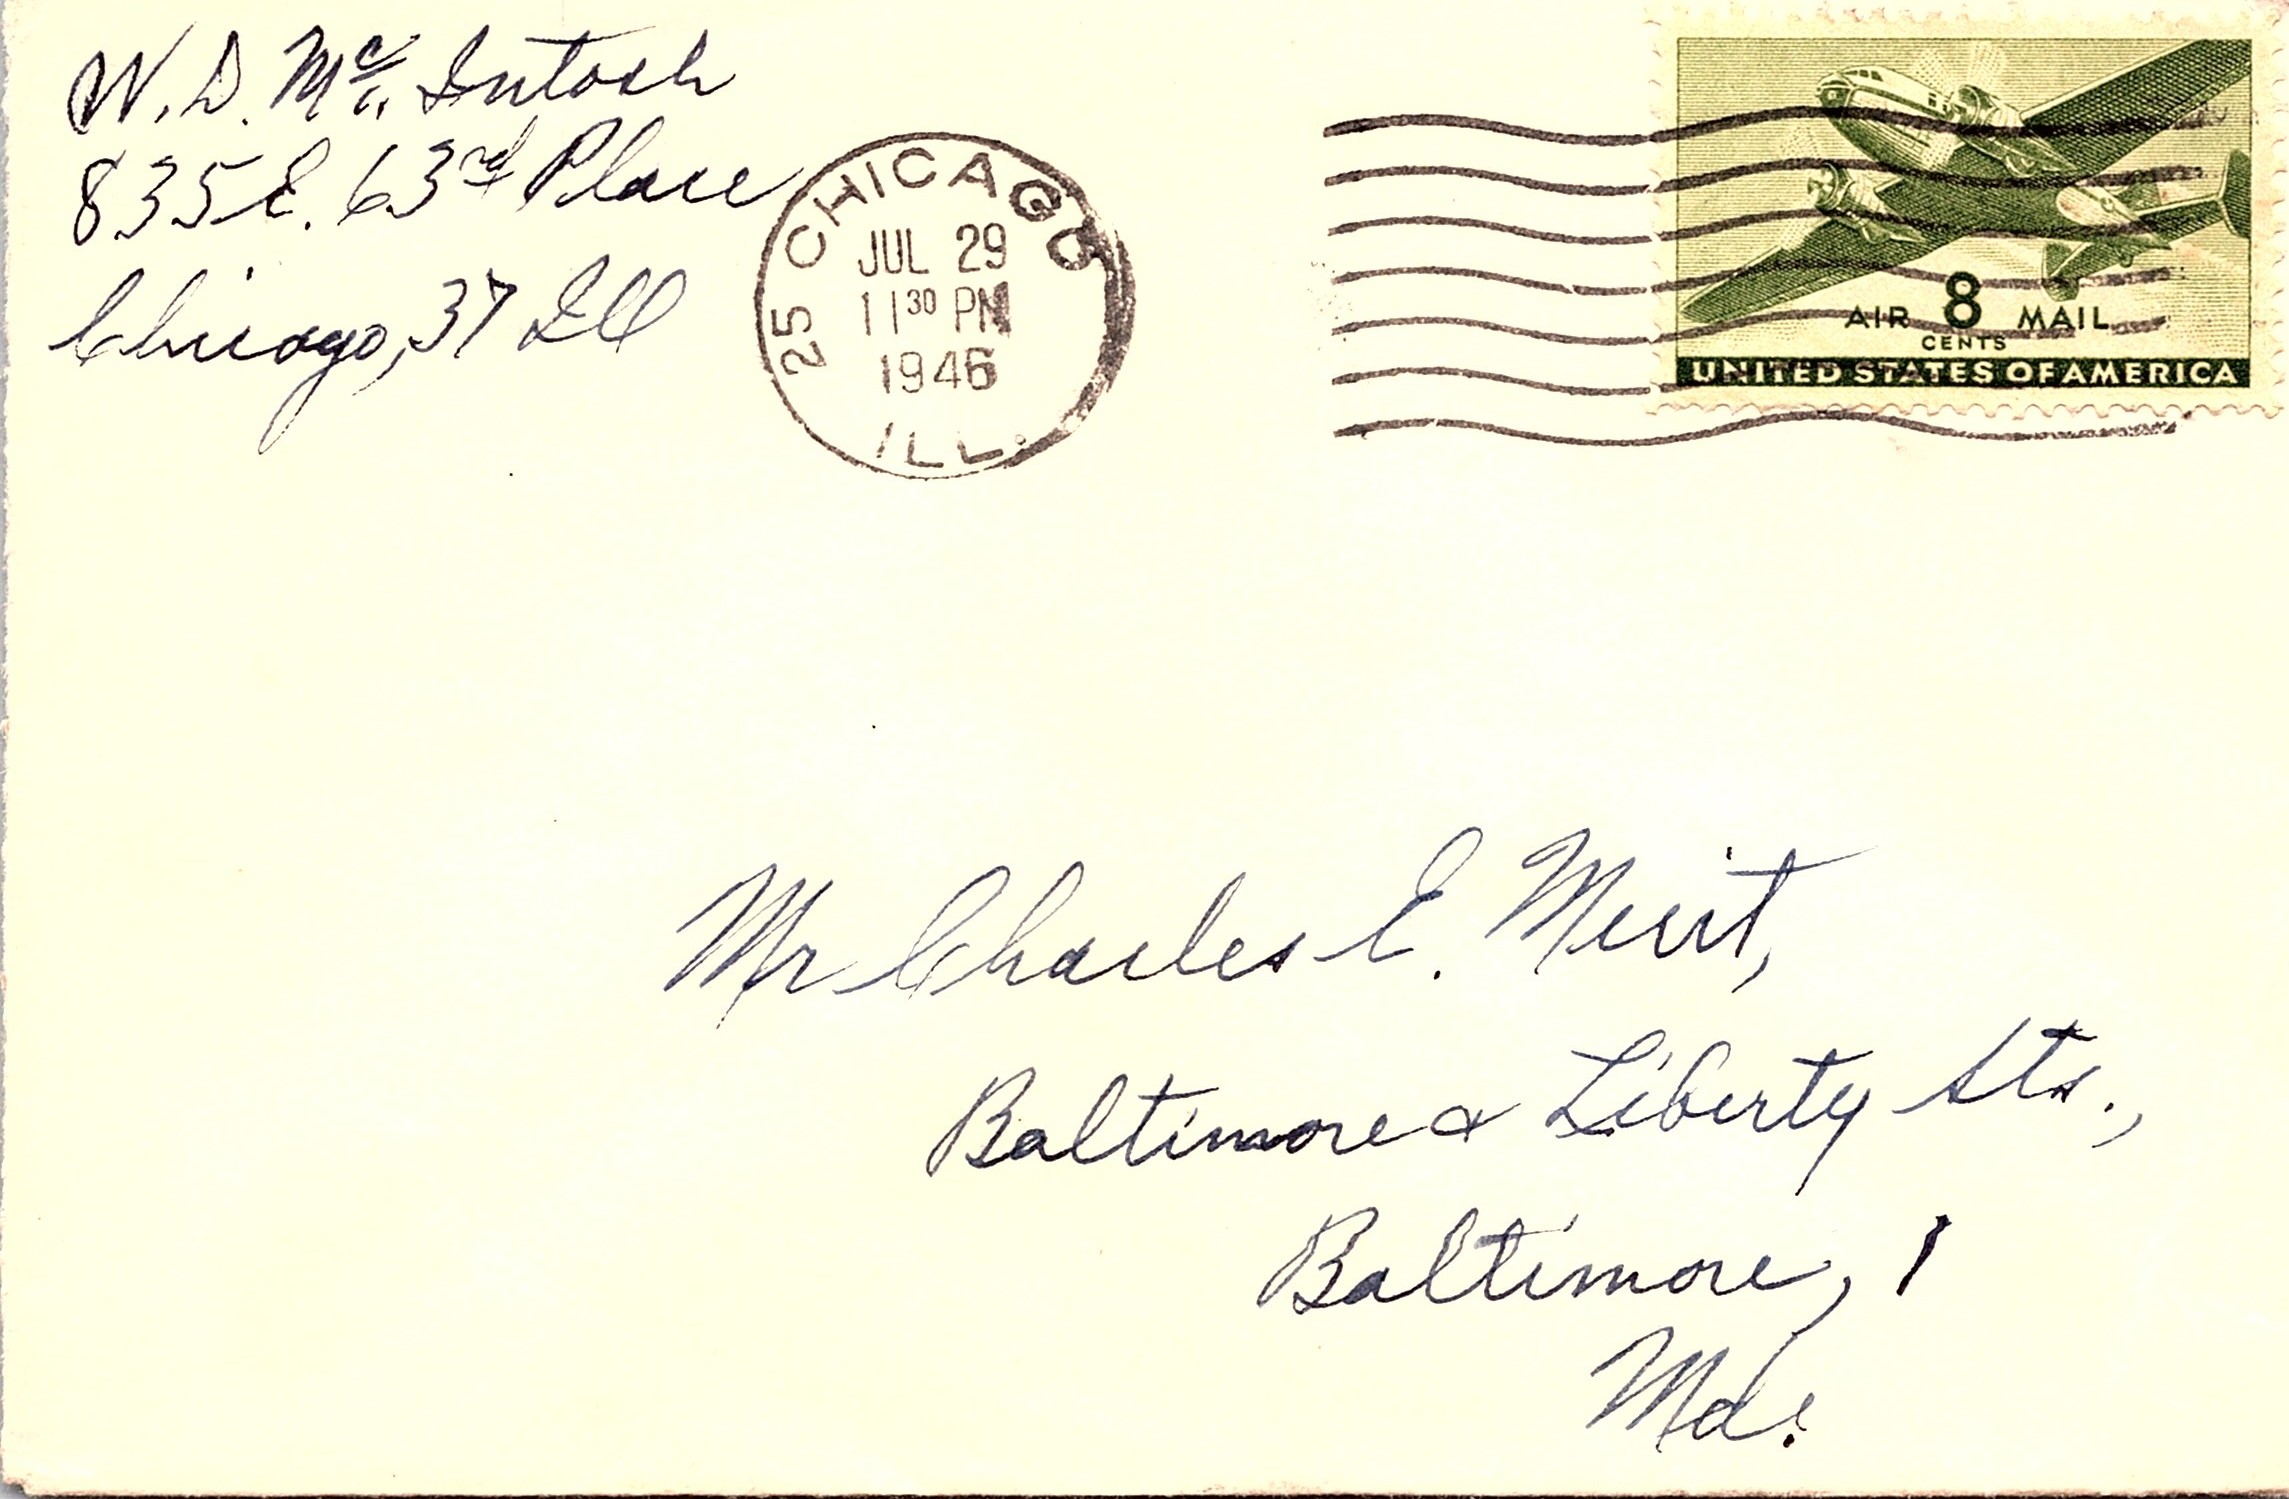 W. D. Mc. Intosh
835 E. 63rd Place
Chicago, 37 Ill
25 CHICAGO
JUL 29
11 30 PM
1946
ILL.
AIR 8 MAIL
CENTS
UNITED STATES OF AMERICA
Mr Charles E. Merit,
Baltimore & Liberty Sts.,
Baltimore, 1
Md.